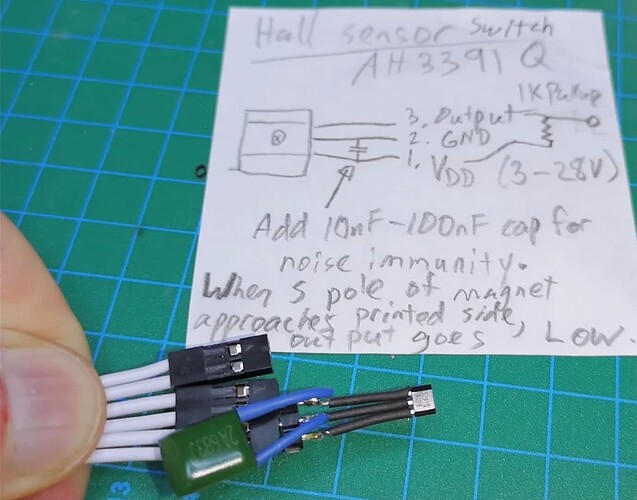 Hall sensor switch
AH3391Q
1K Pullup
3. Output
2. GND
1. VDD (3-28V)
Add 10nF-100nF cap for
noise immunity.
When S pole of magnet
approaches printed side,
output goes LOW.
2A683J